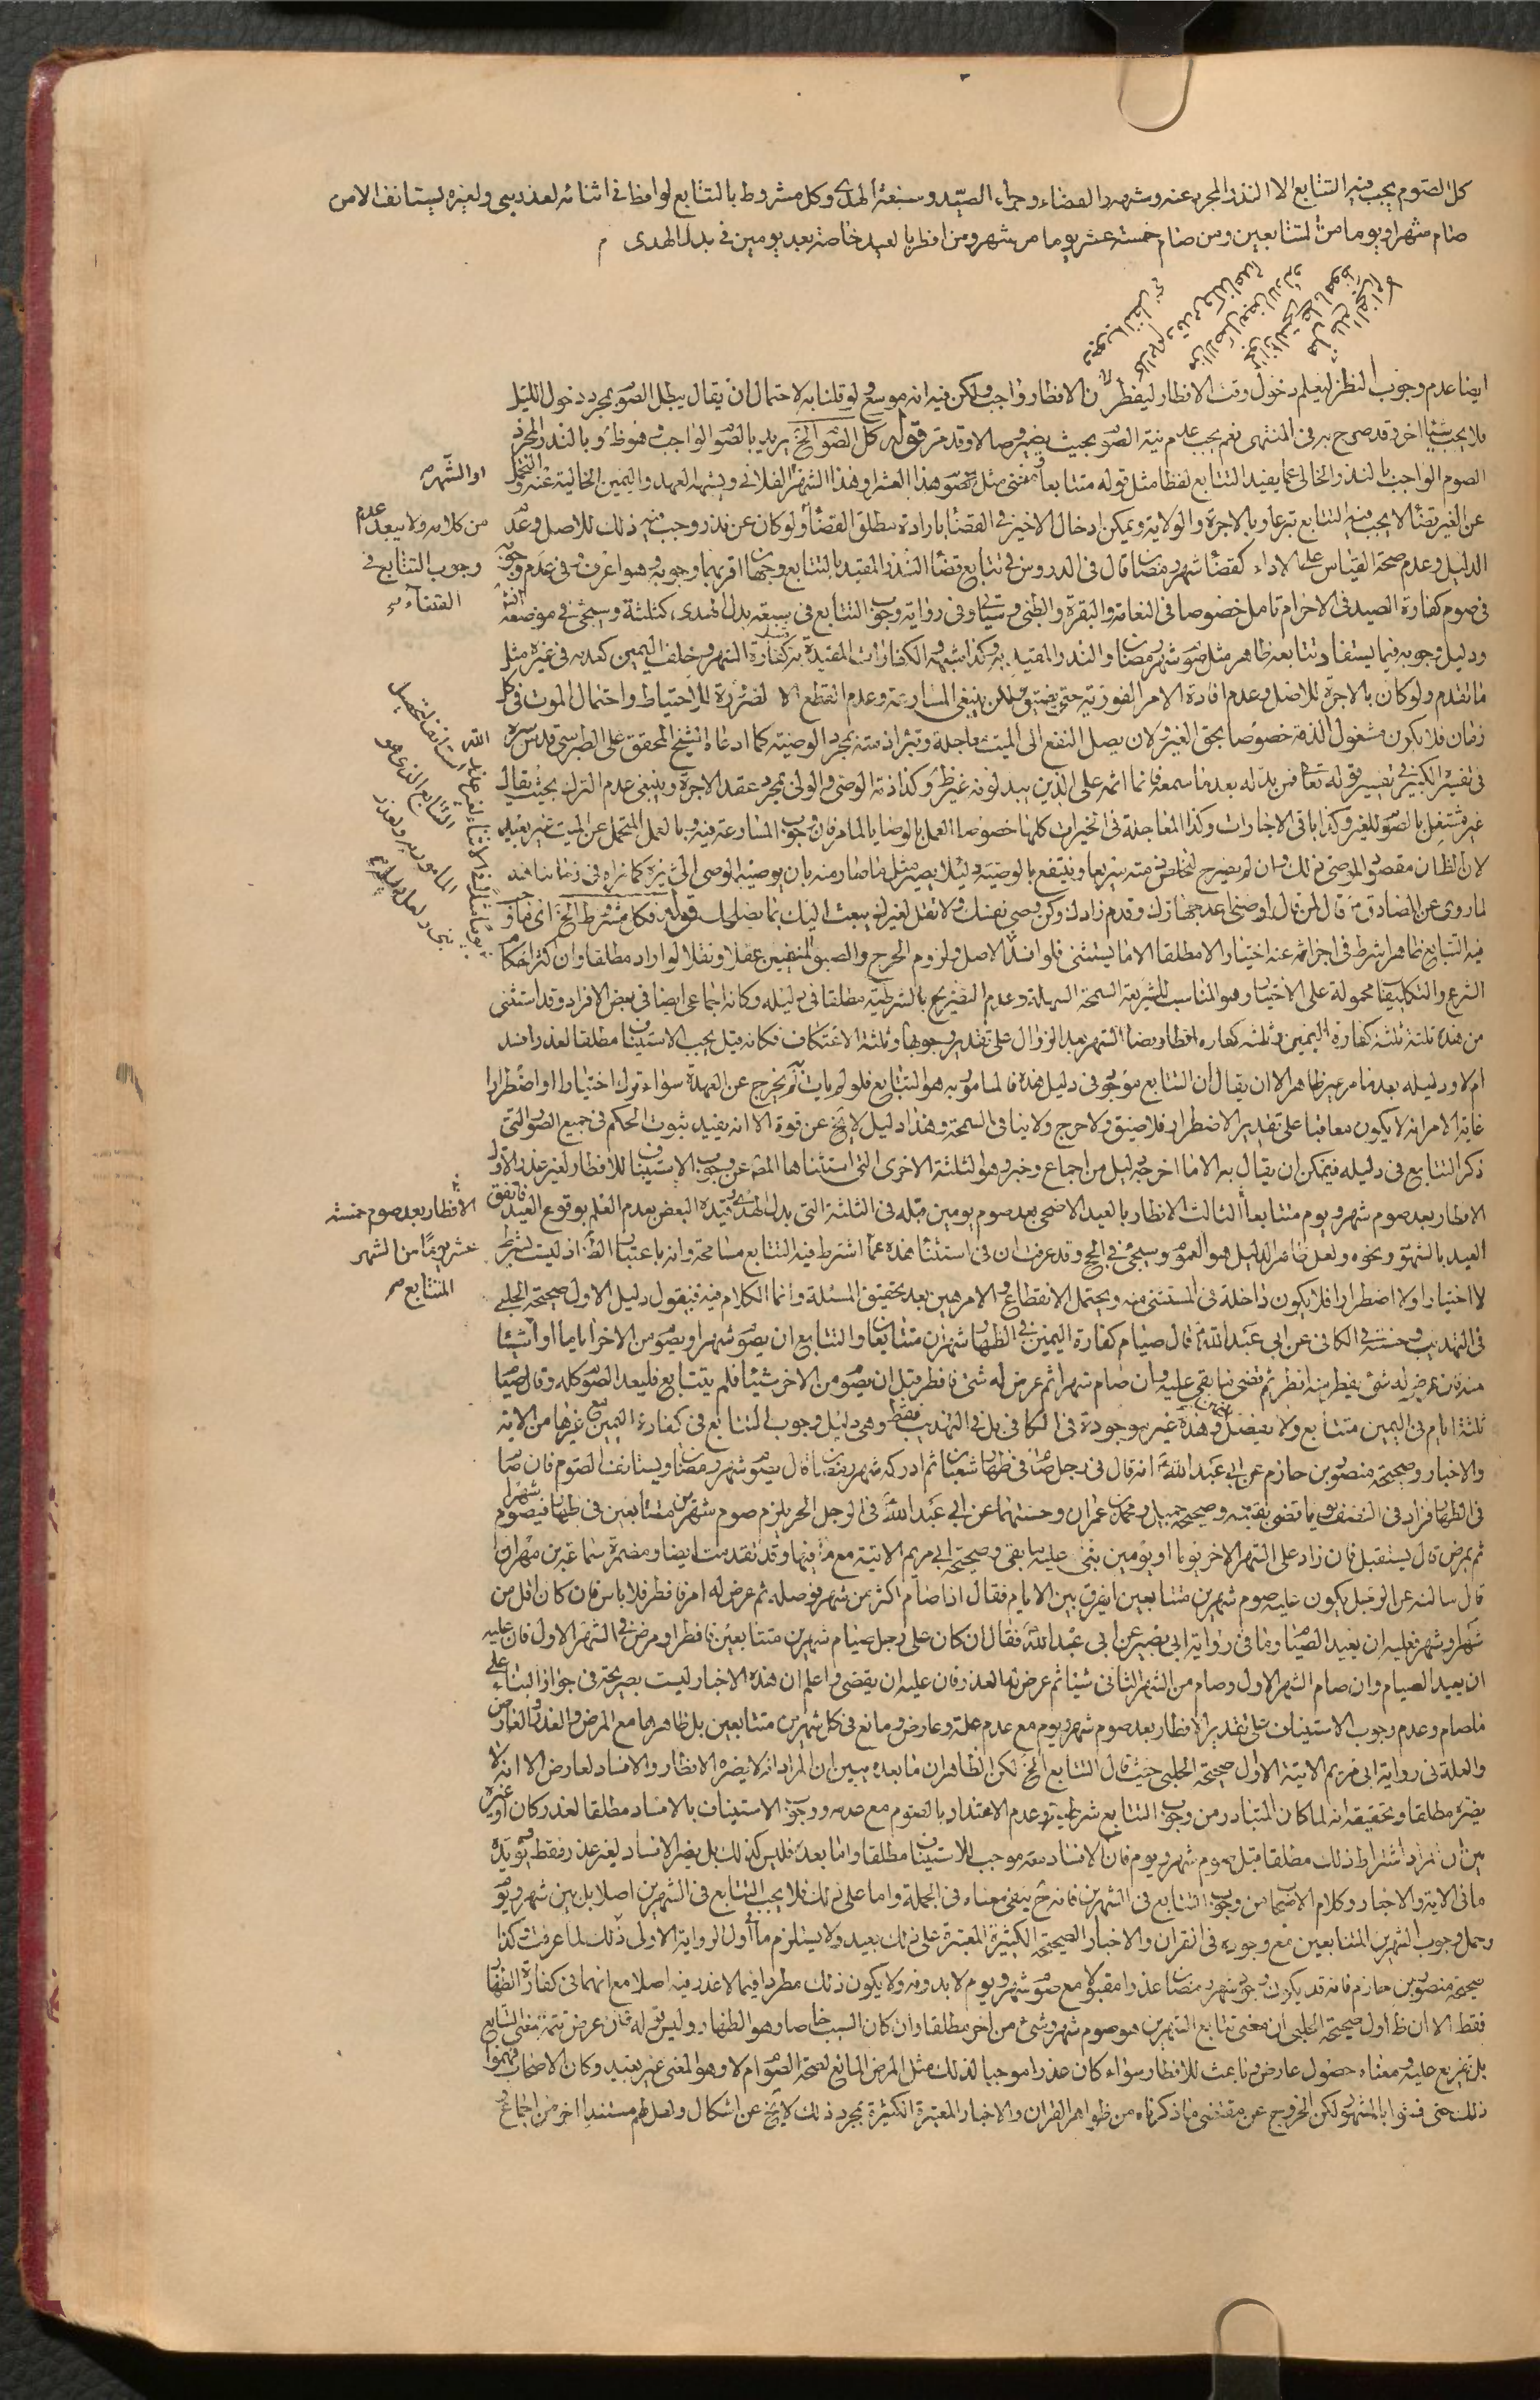 كل الصوم يجب فيه التتابع الا النذر المجرد عنه وشبهه والقضاء وجزاء الصيد وسبعة الهدى وكل مشروط بالتتابع لو افطر فى اثنائه لعذر يبنى ولغيره يستانف الا من
صام شهرا ويوما من المتتابعين ومن صام خمسة عشر يوما من شهر ومن افطر بالعيد خاصة بعد يومين فى بدل الهدى م
ايضا عدم وجوب النظر ليعلم دخول وقت الافطار ليفطر ن الافطار واجب ولكن فيه انه موسع لو قلنا به لاحتمال ان يقال يبطل الصو بمجرد دخول الليل
فلا يجب شيئا اخر وقد صرح به فى المنتهى نعم يجب عدم نية الصو بحيث يصير وصالا وقد مر قوله كل الصو الخ يريد بالصو الواجب وهو ظ وبالنذر المجرد
الصوم الواجب بالنذر الخالى عما يفيد التتابع لفظا مثل قوله متتابعا ومعنى مثل صو هذا العشر او هذا الشهر الفلانى وبشبهه العهد واليمين الخالية عنه والتحمل
او الشهر
عن الغير بقضا لا يجب فيه التتابع تبرعا وبالاجرة والولاية ويمكن ادخال الاخير فى القضا بارادة مطلق القضا ولو كان عن نذر وجب فيه ذلك للاصل وعد
من كلامه ولا يبعد عدم
الدليل وعدم صحة القياس على الاداء كقضا شهر رمضان قال فى الدروس فى تتابع قضا النذر المقيد بالتتابع وجهان اقربهما وجوبه وهو اعرف وفى عدم وجوبه
وجوب التتابع فى
فى صوم كفارة الصيد فى الاحرام تامل خصوصا فى النعامة والبقرة والظبى وسياتى وفى رواية وجوب التتابع فى سبعة بدل الهدى كثلثة وسيجئ فى موضعه انش
القضاء
ودليل وجوبه فيما يستفاد تتابعه ظاهر مثل صو شهر رمضان والنذر المقيد به وكذا شبهه والكفارات المقيدة به ككفارة الشهر وخلف اليمين كعدمه فى غيره مثل
ما تقدم ولو كان بالاجرة للاصل وعدم افادة الامر الفورية حتى يضيق ولكن ينبغى المسارعة وعدم القطع الا لضرورة للاحتياط واحتمال الموت فى كل
زمان فلا يكون مشغول الذمة خصوصا بحق الغير ولان يصل النفع الى الميت عاجلة وتبرا ذمته بمجرد الوصية كما ادعاه الشيخ المحقق على الطبرسى قدس سره
فى تفسيره الكبير فى تفسير قوله تعا فمن بدله بعد ما سمعه فانما اثمه على الذين يبدلونه غير ظ وكذا ذمة الوصى والولى بمجرد عقد الاجرة وينبغى عدم الترك بحيث يقال
غير مشتغل بالصو للغير وكذا باقى الاجارات وكذا المعاجلة فى الخيرات كلها خصوصا العمل بالوصايا لما مر فان وجوب المسارعة فيه وبالعمل المتحمل عن الميت غير بعيد
لان الظان مقصود الموصى ذلك وان لم يصرح لتخلص ذمته سريعا وينتفع بالوصية ولئلا يصير مثل ما صار منه بان يوصيه الوصى الى غيره كما نراه فى زماننا هذا
لما روى عن الصادق ع قال لمن قال اوصنى اعد جهازك وقدم زادك وكن وصى نفسك ولا تقل لغيرك يبعث اليك بما يصلحك قوله فكل مشرط الخ اى ما و
فيه التتابع ظاهرا شرط فى اجزائه عنه اختيارا لا مطلقا الا ما يستثنى فلو افسد الاصل ولزوم الحرج والضيق المنفيين عقلا ونقلا لو اراد مطلقا وان اكثر احكا
الشرع والتكاليف محمولة على الاختيار وهو المناسب للشريعة السمحة السهلة وعدم التصريح بالشرطية مطلقا فى دليله وكانه اجماعى ايضا فى بعض الافراد وقد استثنى
من هذه ثلثة ثلثة كفارة اليمين وثلثه كفاره افطار قضا الشهر بعد الزوال على تقدير وجوبها وثلثة الاعتكاف فكانه قيل يجب الاستيناف مطلقا لعذر افسد
ام لا ودليله بعد ما مر غير ظاهر الا ان يقال ان التتابع موجود فى دليل هذه فالمامور به هو التتابع فلو لم يات به لم يخرج عن العهدة سواء ترك اختيارا او اضطرارا
غاية الامر انه لا يكون معاقبا على تقدير الاضطرار فلا ضيق ولا حرج ولا ينافى السمحة وهذا دليل لا يخ عن قوة الا انه يفيد ثبوت الحكم فى جميع الصو التى
ذكر التتابع فى دليله فيمكن ان يقال به الا ما اخرجه دليل من اجماع وخبر وهو الثلثة الاخرى التى استثناها المص عن وجوب الاستيناف للافطار لغير عذر الاول
الافطار بعد صوم شهر ويوم متتابعا الثالث الافطار بالعيد الاضحى بعد صوم يومين قبله فى الثلثة التى بدل الهدى وقيده البعض بعدم العلم بوقوع العيد فاتفق
الافطار بعد صوم خمسة
العيد بالشهود ونحوه ولعل ظاهر الدليل هو العموم وسيجئ فى الحج وقد عرفت ان فى استثنا هذه عما اشترط فيه التتابع مسامحة وانه باعتبار الظ اذ ليست بشرط
عشر يوما من الشهر
لا اختيارا ولا اضطرارا فلا يكون داخلة فى المستثنى منه ويحتمل الانقطاع والامر هين بعد تحقيق المسئلة وانما الكلام فيه فنقول دليل الاول صحيحة الحلبى
المتتابع صح
فى التهذيب وحسنته فى الكافى عن ابى عبد الله ع قال صيام كفارة اليمين فى الظهار شهرين متتابعان والتتابع ان يصو شهرا ويصو من الاخر اياما او شيئا
منه فان عرض له شئ يفطر منه افطر ثم قضى ما بقى عليه وان صام شهرا ثم عرض له شئ فافطر قبل ان يصو من الاخر شيئا فلم يتتابع فليعد الصو كله وقال صيا
ثلثة ايام فى اليمين متتابع ولا يفصل وهذه غير موجودة فى الكافى بل فى التهذيب فقط وهى دليل وجوب التتابع فى كفارة اليمين مع غيرها من الاية
والاخبار وصحيحة منصور بن حازم عن ابى عبد الله ع انه قال فى رجل صام فى ظهار شعبان ثم ادركه شهر رمضان قال يصو شهر رمضان ويستانف الصوم فان صا
فى الظهار فزاد فى النصف يوما قضى بقيته وصحيحة جميل ومحمد بن حمران وحسنتهما عن ابى عبد الله ع فى الرجل الحر يلزم صوم شهرين متتابعين فى ظهار فيصوم شهرا
ثم يمرض قال يستقبل فان زاد على الشهر الاخر يوما او يومين بنى عليه ما بقى وصحيحة ابى مريم الاتية مع ما فيها وقد تقدمت ايضا ومضمرة سماعة بن مهران
قال سالته عن الرجل يكون عليه صوم شهرين متتابعين ايفرق بين الايام فقال اذا صام اكثر من شهر فوصله ثم عرض له امر فافطر فلا باس فان كان اقل من
شهر او شهر فعليه ان يعيد الصيام وما فى رواية ابى بصير عن ابى عبد الله ع فقال ان كان على رجل صيام شهرين متتابعين فافطر او مرض فى الشهر الاول فان عليه
ان يعيد الصيام وان صام الشهر الاول وصام من الشهر الثانى شيئا ثم عرض له ما له عذر فان عليه ان يقضى واعلم ان هذه الاخبار ليست بصريحة فى جواز البناء على
ما صام وعدم وجوب الاستيناف على تقدير الافطار بعد صوم شهر ويوم مع عدم علة وعارض ومانع فى كل شهرين متتابعين بل ظاهرها مع المرض والعذر والعارض
والعلة فى رواية ابى مريم الاتية الاول صحيحة الحلبى حيث قال التتابع الخ لكن الظاهر ان ما بعده يبين ان المراد انه لا يضره الافطار والافساد لعارض الا انه لا
يضره مطلقا وتحقيقه انه لما كان المتبادر من وجوب التتابع شرطيته وعدم الاعتداد بالصوم مع عدمه ووجوب الاستيناف بالافساد مطلقا لعذر كان او غيره
بين ان المراد اشتراط ذلك مطلقا قبل صوم شهر ويوم فان الافساد معه موجب للاستيناف مطلقا واما بعده فليس كذلك بل يضر الافساد لغير عذر فقط يؤيده
ما فى الاية والاخبار وكلام الاصحاب من وجوب التتابع فى الشهرين فانه ح يبقى معناه فى الجملة واما على ذلك فلا يجب التتابع فى الشهرين اصلا بل بين شهر ويو
وحمل وجوب الشهرين المتتابعين مع وجوده فى القران والاخبار الصحيحة الكثيرة المعتبرة على ذلك بعيد ولا يستلزم ما فى اول الرواية الاولى ذلك لما عرفت وكذا
صحيحة منصور بن حازم فانه قد يكون وجود شهر رمضان عذرا مقبولا مع صو شهر ويوم لا بدونه ولا يكون ذلك مطردا فيما لا عذر فيه اصلا مع انهما فى كفارة الظهار
فقط الا ان ظ اول صحيحة الحلبى ان معنى تتابع الشهرين هو صوم شهر وشئ من اخر مطلقا وان كان السبب خاصا وهو الظهار وليس قوله فان عرض تتمة معنى التتابع
بل تفريع عليه ومعناه حصول عارض وباعث للافطار سواء كان عذرا موجبا لذلك مثل المرض المانع لصحة الصو ام لا وهو المعنى غير بعيد وكان الاصحاب فهموا
ذلك حتى افتوا بالمشهور لكن الخروج عن مقتضى ما ذكرناه من ظواهر القران والاخبار المعتبرة الكثيرة بمجرد ذلك لا يخ عن اشكال ولعل لهم مستندا اخر من اجماع